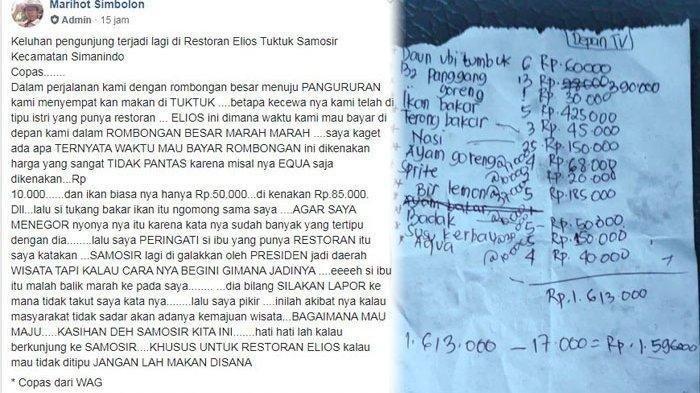 Marihot Simbolon
Admin · 15 jam
Keluhan pengunjung terjadi lagi di Restoran Elios Tuktuk Samosir
Kecamatan Simanindo
Copas.......
Dalam perjalanan kami dengan rombongan besar menuju PANGURURAN
kami menyempat kan makan di TUKTUK ....betapa kecewa nya kami telah di
tipu istri yang punya restoran ... ELIOS ini dimana waktu kami mau bayar di
depan kami dalam ROMBONGAN BESAR MARAH MARAH ....saya kaget
ada apa TERNYATA WAKTU MAU BAYAR ROMBONGAN ini dikenakan
harga yang sangat TIDAK PANTAS karena misal nya EQUA saja
dikenakan...Rp
10.000.....dan ikan biasa nya hanya Rp.50,000...di kenakan Rp.85.000.
Dll...lalu si tukang bakar ikan itu ngomong sama saya ....AGAR SAYA
MENEGOR nyonya nya itu karena kata nya sudah banyak yang tertipu
dengan dia........lalu saya PERINGATI si ibu yang punya RESTORAN itu
saya katakan ...SAMOSIR lagi di galakkan oleh PRESIDEN jadi daerah
WISATA TAPI KALAU CARA NYA BEGINI GIMANA JADINYA ....eeeeh si ibu
itu malah balik marah ke pada saya......dia bilang SILAKAN LAPOR ke
mana tidak takut saya kata nya.......lalu saya pikir ....inilah akibat nya kalau
masyarakat tidak sadar akan adanya kemajuan wisata...BAGAIMANA MAU
MAJU.....KASIHAN DEH SAMOSIR KITA INI.......hati hati lah kalau
berkunjung ke SAMOSIR....KHUSUS UNTUK RESTORAN ELIOS kalau
mau tidak ditipu JANGAN LAH MAKAN DISANA
* Copas dari WAG
Depan TV
Daun ubi tumbuk 6 Rp. 60000
B2 Panggang 13 Rp. 390000
goreng 1 Rp 30 000
Ikan bakar 5 Rp. 425000
Terong bakar 3 Rp. 45 000
Nasi 25 Rp. 150 000
Ayam goreng 4 Rp. 68 000
Sprite Rp. 20 000
Bir lemon 5 Rp. 185 000
Ayam bakar
Badak 5 Rp. 50 000
Susu kerbau 5 Rp. 150 000
Aqua 4 Rp. 40 000
Rp. 1. 613 000
1. 613.000 - 17.000 = Rp. 1. 596000